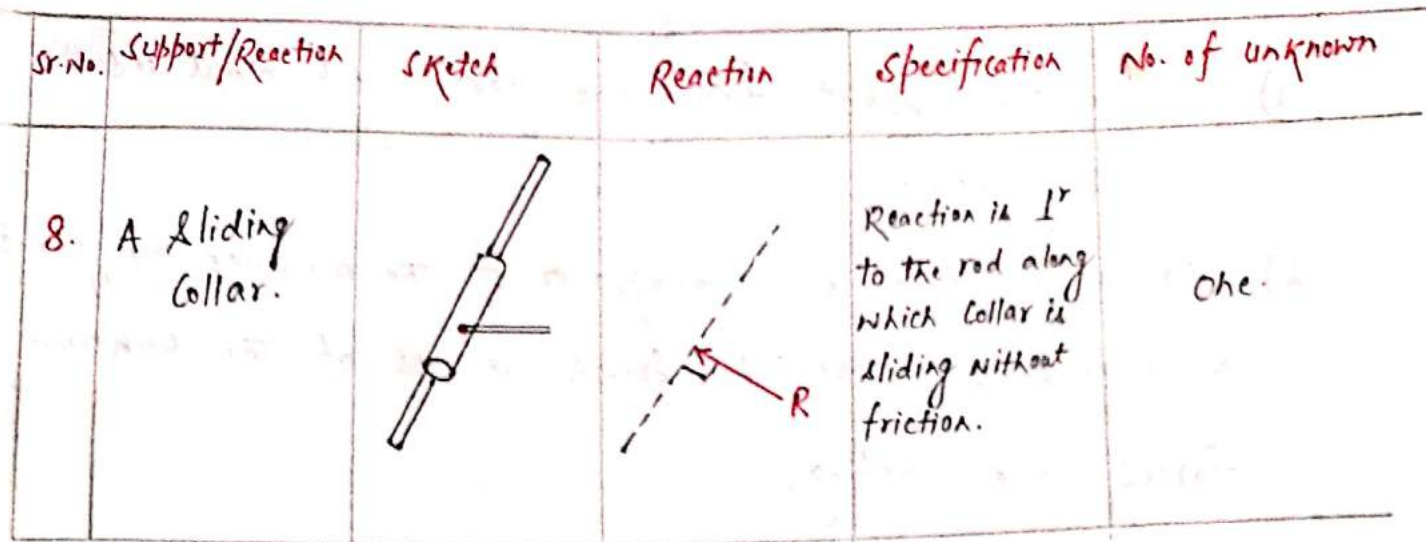 Sr.No. Support/Reaction Sketch Reaction Specification No. of unknown
8. A sliding
Collar.
R
Reaction is ⊥r
to the rod along
which Collar is
sliding without
friction.
One.